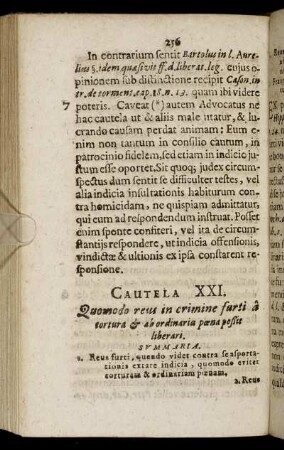 256
In contrarium sentit Bartolus in l. Aure-
lius §. idem quæsivit ff. d. liberat. leg. cujus o-
pinionem sub distinctione recipit Cason. in
tr. de torment. cap. 18. n. 13. quam ibi videre
7 poteris. Caveat (*) autem Advocatus ne
hac cautela ut & aliis male utatur, & lu-
crando causam perdat animam: Eum e-
nim non tantum in consilio cautum, in
patrocinio fidelem, sed etiam in indicio ju-
stum esse oportet. Sit quoq; judex circum-
spectus dum sentit se difficulter testes, vel
alia indicia insultationis habiturum con-
tra homicidam, ne quispiam admittatur,
qui eum ad respondendum instruat. Posset
enim sponte confiteri, vel ita de circum-
stantijs respondere, ut indicia offensionis,
vindictæ & ultionis ex ipsa constarent re-
sponsione.
CAUTELA XXI.
Quomodo reus in crimine furti à
tortura & ab ordinaria pœna possit
liberari.
SUMMARIA.
1. Reus furti, quando videt contra se asporta-
tionis extare indicia, quomodo evitet
torturam & ordinariam pœnam.
2. Reus